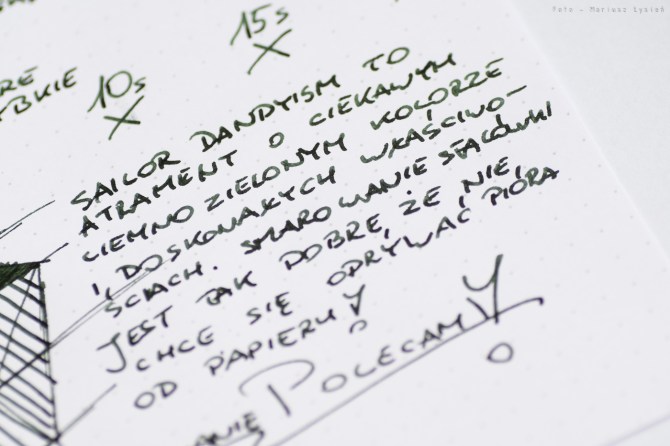 Foto - Mariusz Łysień
15s
10s
SAILOR DANDYISM TO
ATRAMENT O CIEKAWYM
CIEMNO ZIELONYM KOLORZE
I DOSKONAŁYCH WŁAŚCIWO-
ŚCIACH. SMAROWANIE STALÓWKI
JEST TAK DOBRE, ŻE NIE
CHCE SIĘ ODRYWAĆ PIÓRA
OD PAPIERU!
POLECAM!